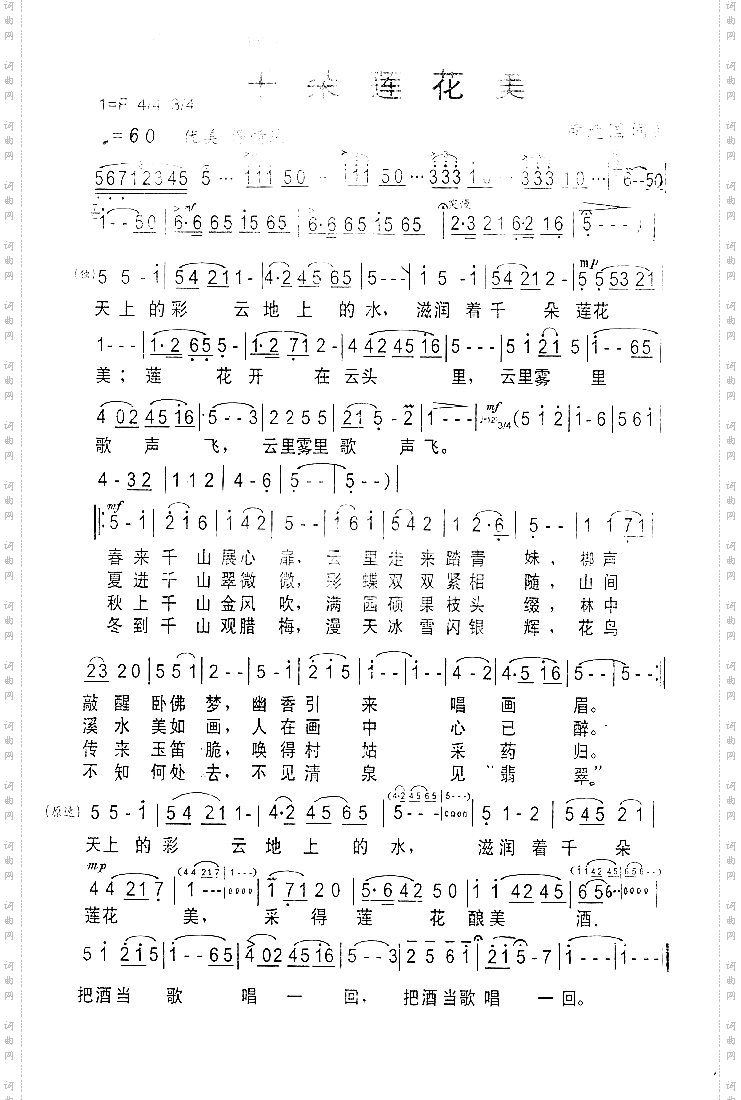 十朵莲花美
1=F 4/4 3/4
=60
56712345 5··· 111 50··· 111 50··· 333 10··· 333 10··· 6--50
1--50 6·6 65 15 65 6·6 65 15 65 2·3 21 6·2 16 5---
5 5 -1 54 21 1- 4·2 45 65 5--- 1 5 -1 54 21 2- mp 5 5 53 21
天上的彩 云地上 的水，滋润着千 朵 莲花
1--- 1·2 65 5- 1·2 71 2- 4 42 45 16 5--- 5 1 21 5 1--65
美；莲 花开 在云头 里，云里雾 里
4 02 45 16 5--3 2 2 5 5 21 5-2 1--- mf 3/4 (5 1 2 1-6 5 6 1
歌声 飞，云里雾里歌 声飞。
4-32 1 1 2 4-6 5-- 5--)
mf 5-1 2 1 6 1 4 2 5-- 5-1 1 6 1 5 4 2 1 2·6 5-- 1 1 71
春来千山展心扉，云里走来踏青 妹，梆声
夏进千山翠微微，彩蝶双双紧相 随，山间
秋上千山金风吹，满园硕果枝头 缀，林中
冬到千山观腊梅，漫天冰雪闪银 辉，花鸟
23 20 5 5 1 2-- 5-1 2 1 5 1-- 1-- 4-2 4·5 16 5-- 5--
敲醒卧佛梦，幽香引来 唱画 眉。
溪水美如画，人在画中 心已 醉。
传来玉笛脆，唤得村姑 采药 归。
不知何处去，不见清泉 见“翡 翠。”
(4·2 45 65 5---)
5 5 -1 54 21 1- 4·2 45 65 5--- 5 1-2 5 45 21
天上的彩 云地上 的水， 滋润着千朵
mp (44 217 1---) (11 42 45 6---)
4 4 21 7 1--- 1 71 20 5·6 42 50 1 1 42 45 6 56
莲花 美， 采得莲 花酿美 酒.
5 1 21 5 1-- 5-- 4 02 45 16 5--3 2 5 6 1 21 5-7 1---
把酒当 歌 唱一 回， 把酒当歌唱 一回。
词曲网